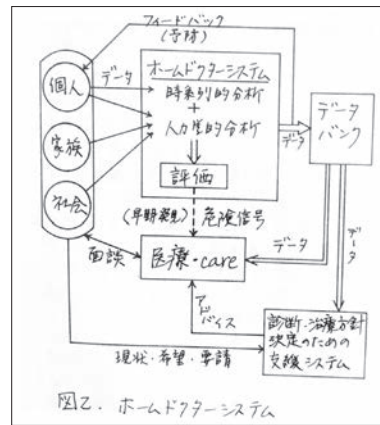 フィードバック
(予防)
個人
データ
ホームドクターシステム
時系列的分析
+
分析
データ
データ
バンク
家族
評価
社会
(早期発見)
危険信号
面談
医療・care
データ
データ
アドバイス
診断・治療方針
決定のための
支援システム
現状・希望・要請
図2. ホームドクターシステム